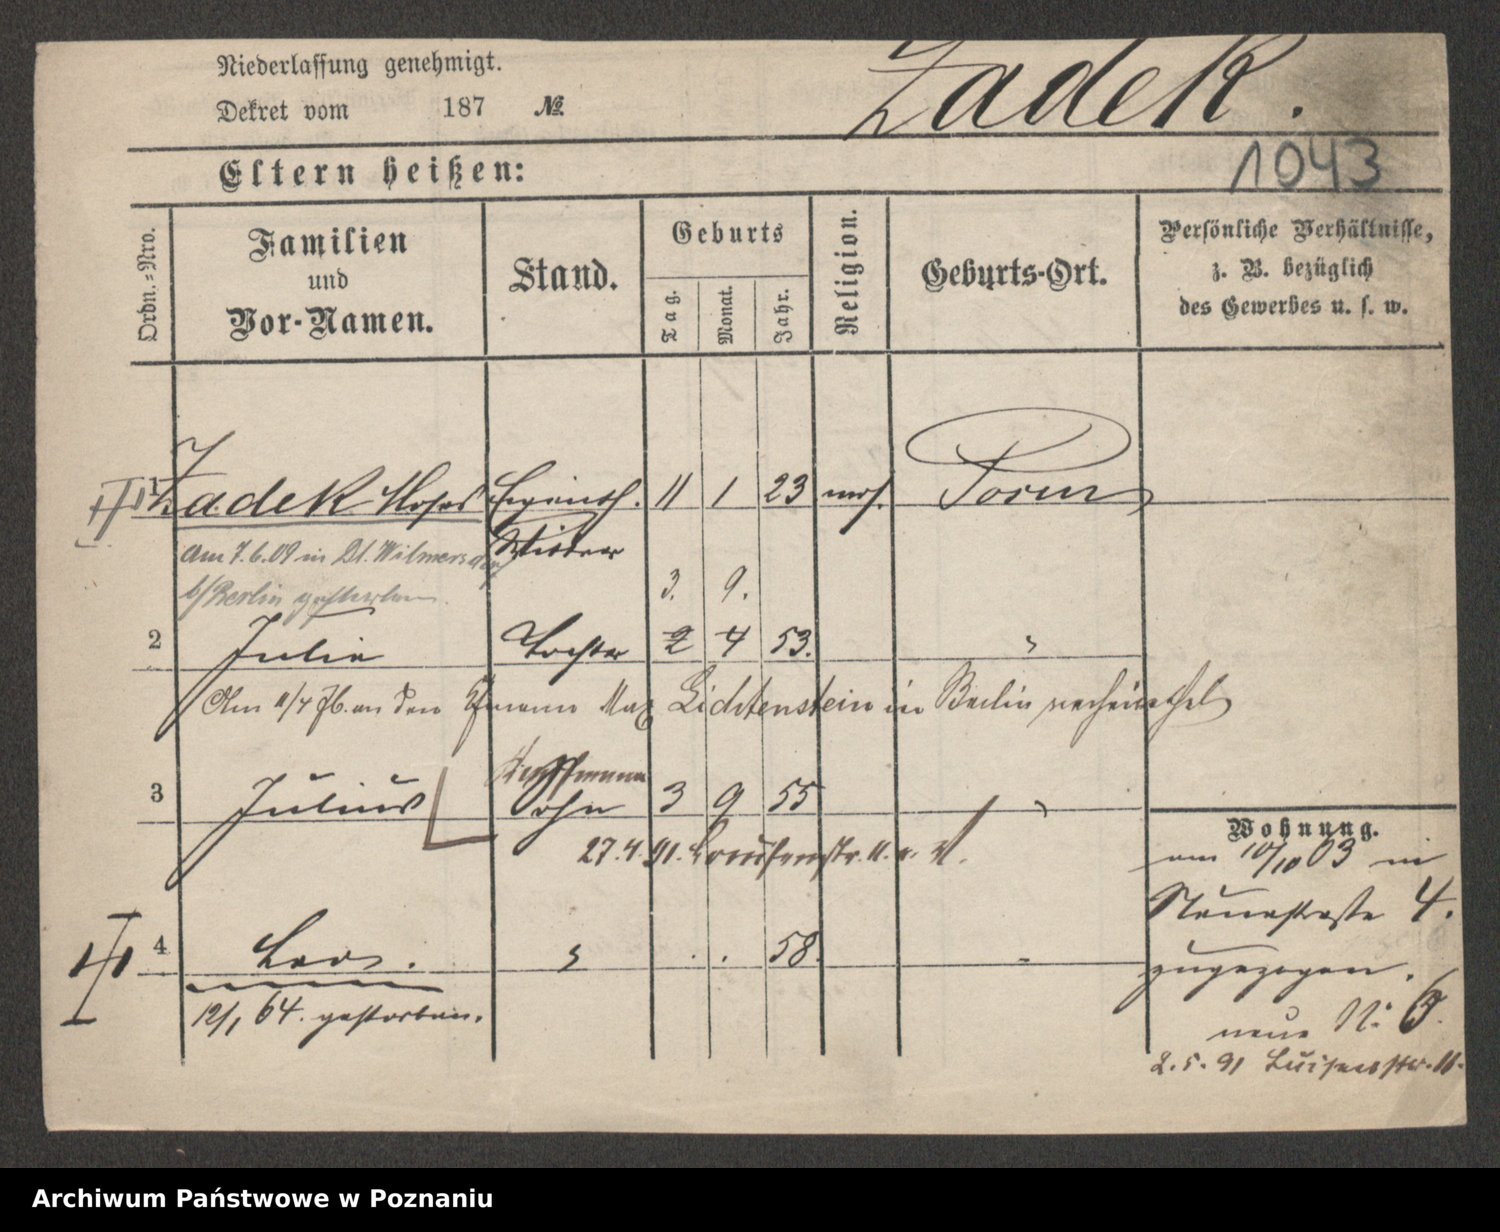 Niederlassung genehmigt.
Dekret vom 187 №
Zadek.
1043
Eltern heißen:
Ordn.-Nro.
Familien
und
Vor-Namen.
Stand.
Geburts
Tag.
Monat.
Jahr.
Religion.
Geburts-Ort.
Persönliche Verhältnisse,
z. B. bezüglich
des Gewerbes u. s. w.
1 Zadek Moses 11 1 23 mos. Posen
Wittwer
am 7.6.09 in Dt. Wilmersdorf
b/Berlin gestorben.
3. 9.
2 Julie Tochter 2 4 53. "
Am 11/4 76. an den Max Lichtenstein in Berlin verheirathet
Kaufmann
3 Julius Sohn 3 9 55 "
27.4.91. Louisenstr. 11.
4 Leo. " . . 58. "
12/1 64. gestorben.
Wohnung.
am 10/10 03 in
4.
zugezogen.
neue N: 6.
2.5.91 Luisenstr. 11.
Archiwum Państwowe w Poznaniu